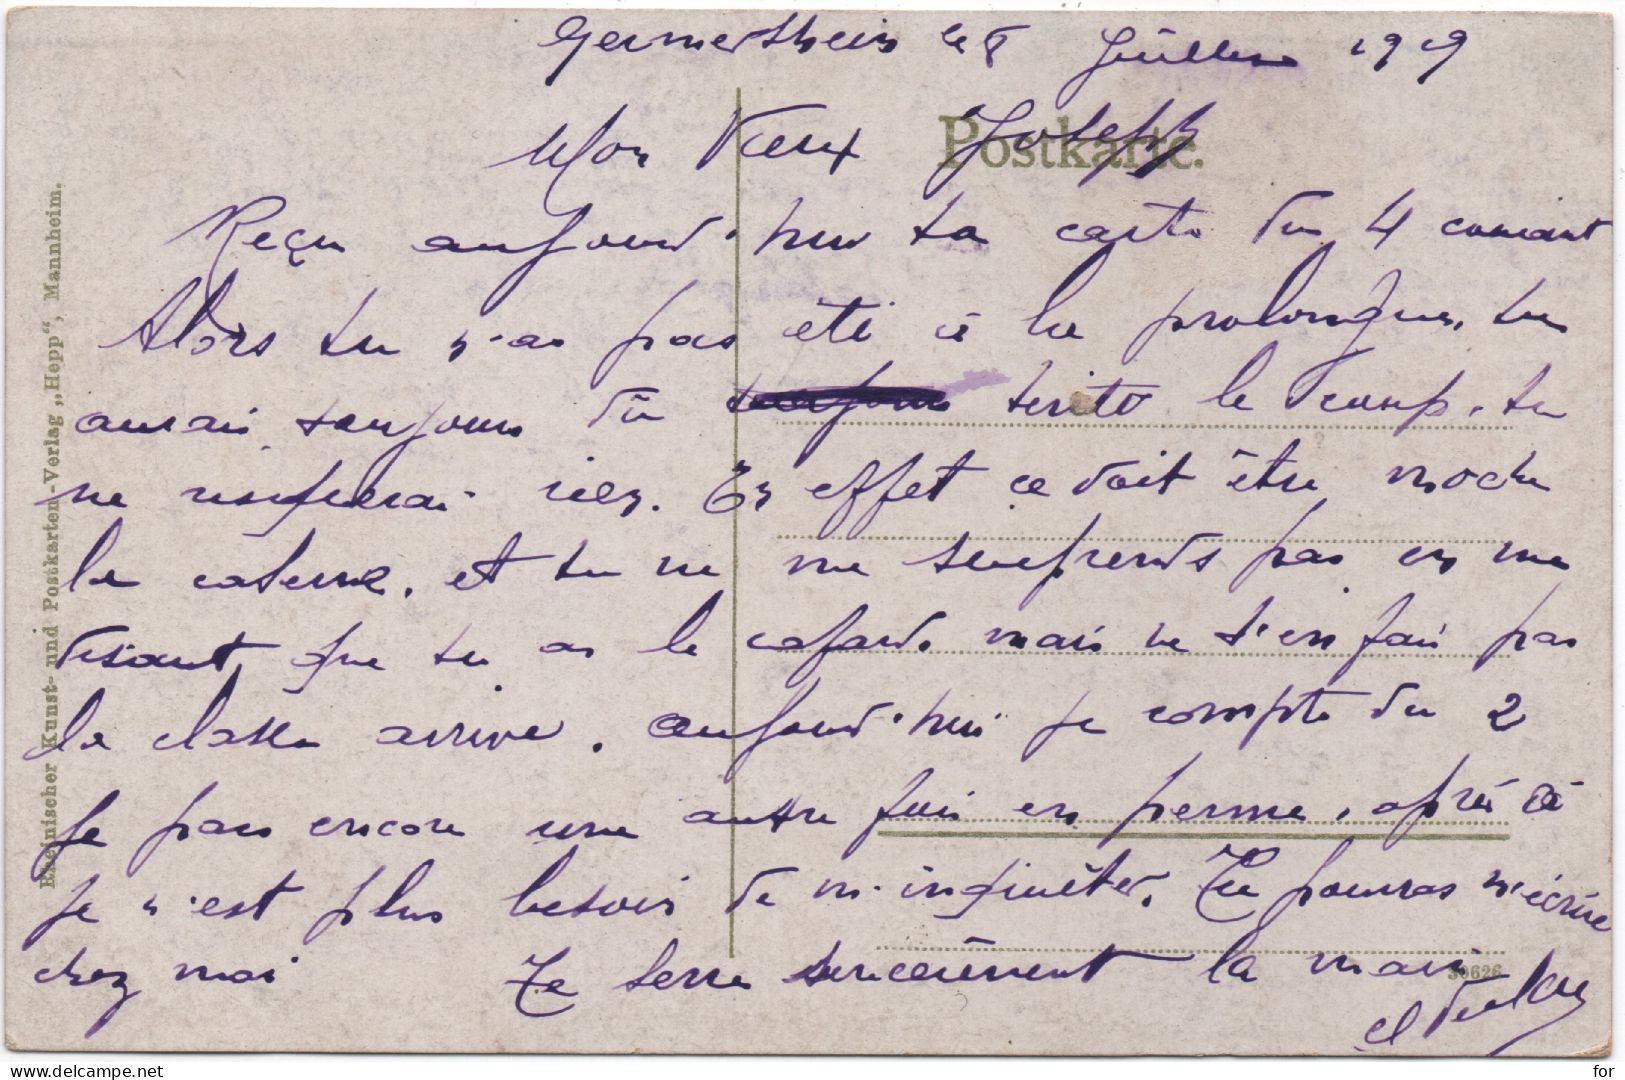 Germersheim le 8 Juillet 1919
Mon Vieux Joseph
Postkarte.
Reçu aujourd'hui ta carte du 4 courant
Alors tu n'as pas été à la prolongue, tu
aurais toujours dû tenter le coup, tu
ne risquerai rien. En effet ce doit être moche
la caserne, et tu ne me surprends pas en me
disant que tu as le cafard. mais ne t'en fais pas
la classe arrive. aujourd'hui je compte du 2
je pars encore une autre fois en perme, après ça
je n'est plus besoin de m'inquiéter. Tu pourras m'écrire
chez moi Te serre sincèrement la main
Rheinischer Kunst- und Postkarten-Verlag „Hepp“, Mannheim.
30626
delcampe.net
for